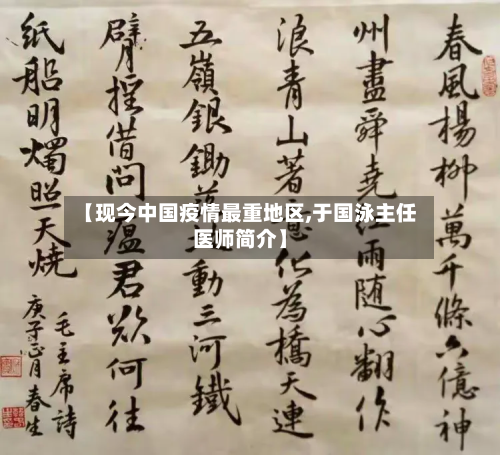 春風楊柳萬千條六億神
州盡舜堯紅雨随心翻作
浪青山著意化為橋天連
五嶺銀鋤動三河鐵
臂摇借問瘟君欲何往
纸船明燭照天燒
毛主席詩
庚子正月春生
【现今中国疫情最重地区,于国泳主任
医师简介】